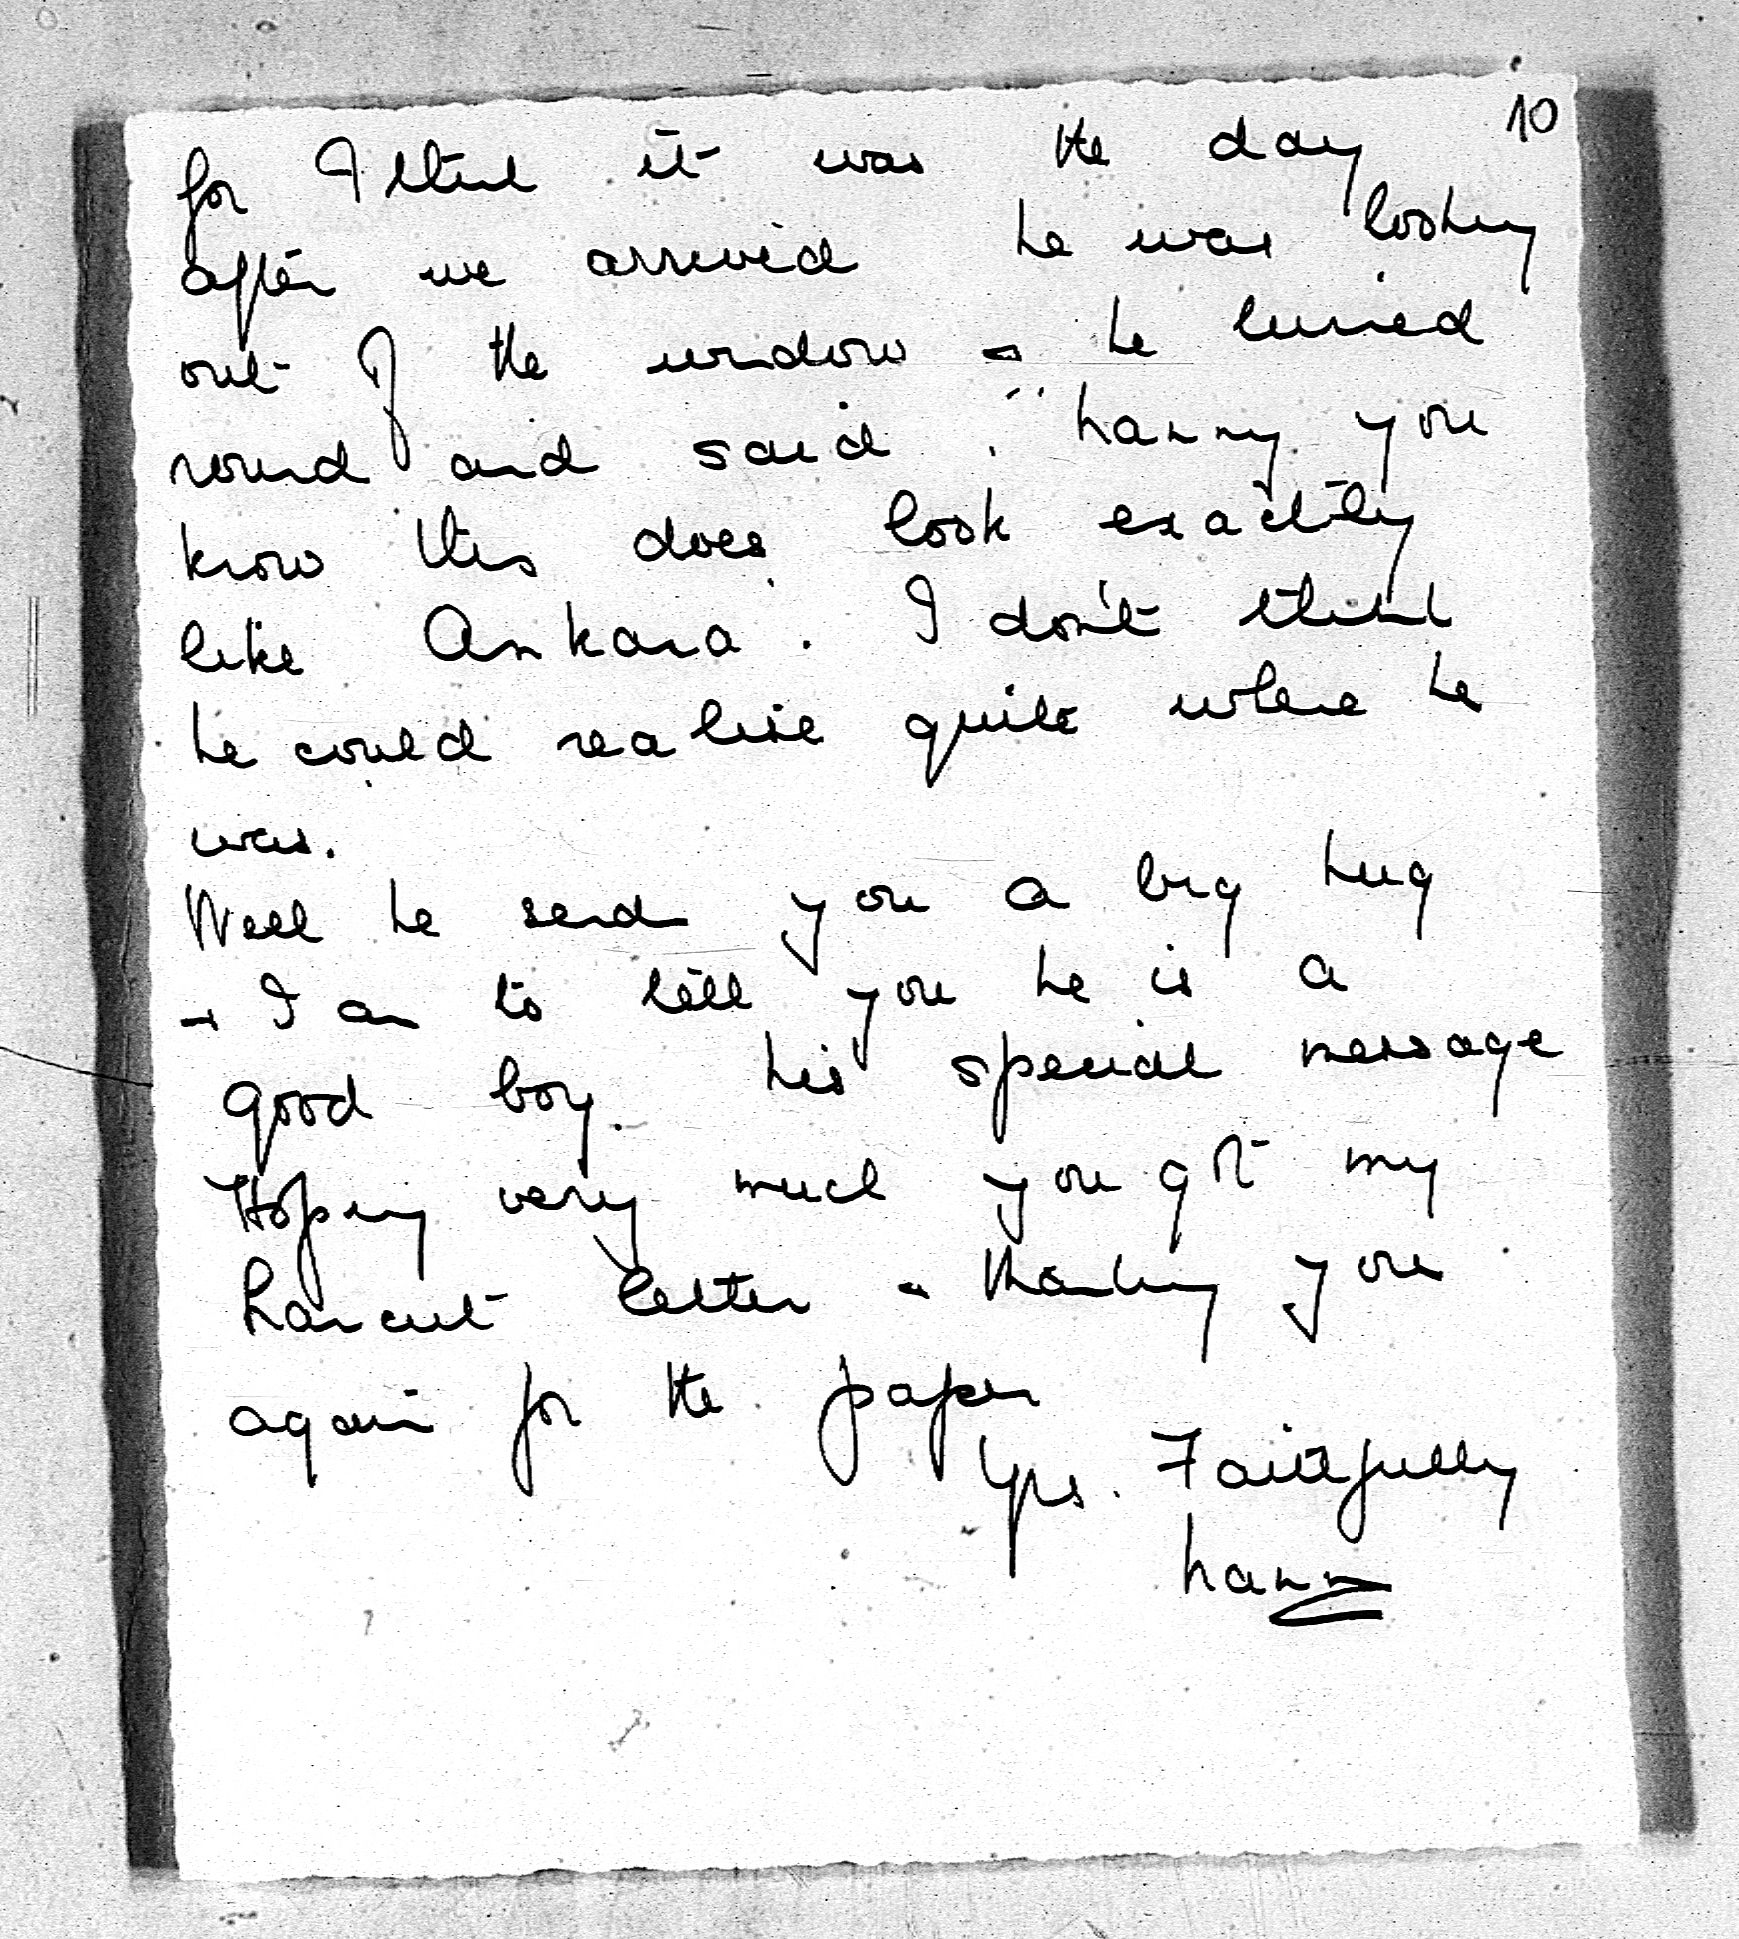 10
for I think it was the day
after we arrived he was looking
out of the window - he turned
round and said "Nanny you
know this does look exactly
like Ankara. I don't think
he could realise quite where he
was.
Well he send you a big hug
+ I am to tell you he is a
good boy. his special message
Hoping very much you got my
haircut letter - thanking you
again for the paper
Yrs. Faithfully
Nanny